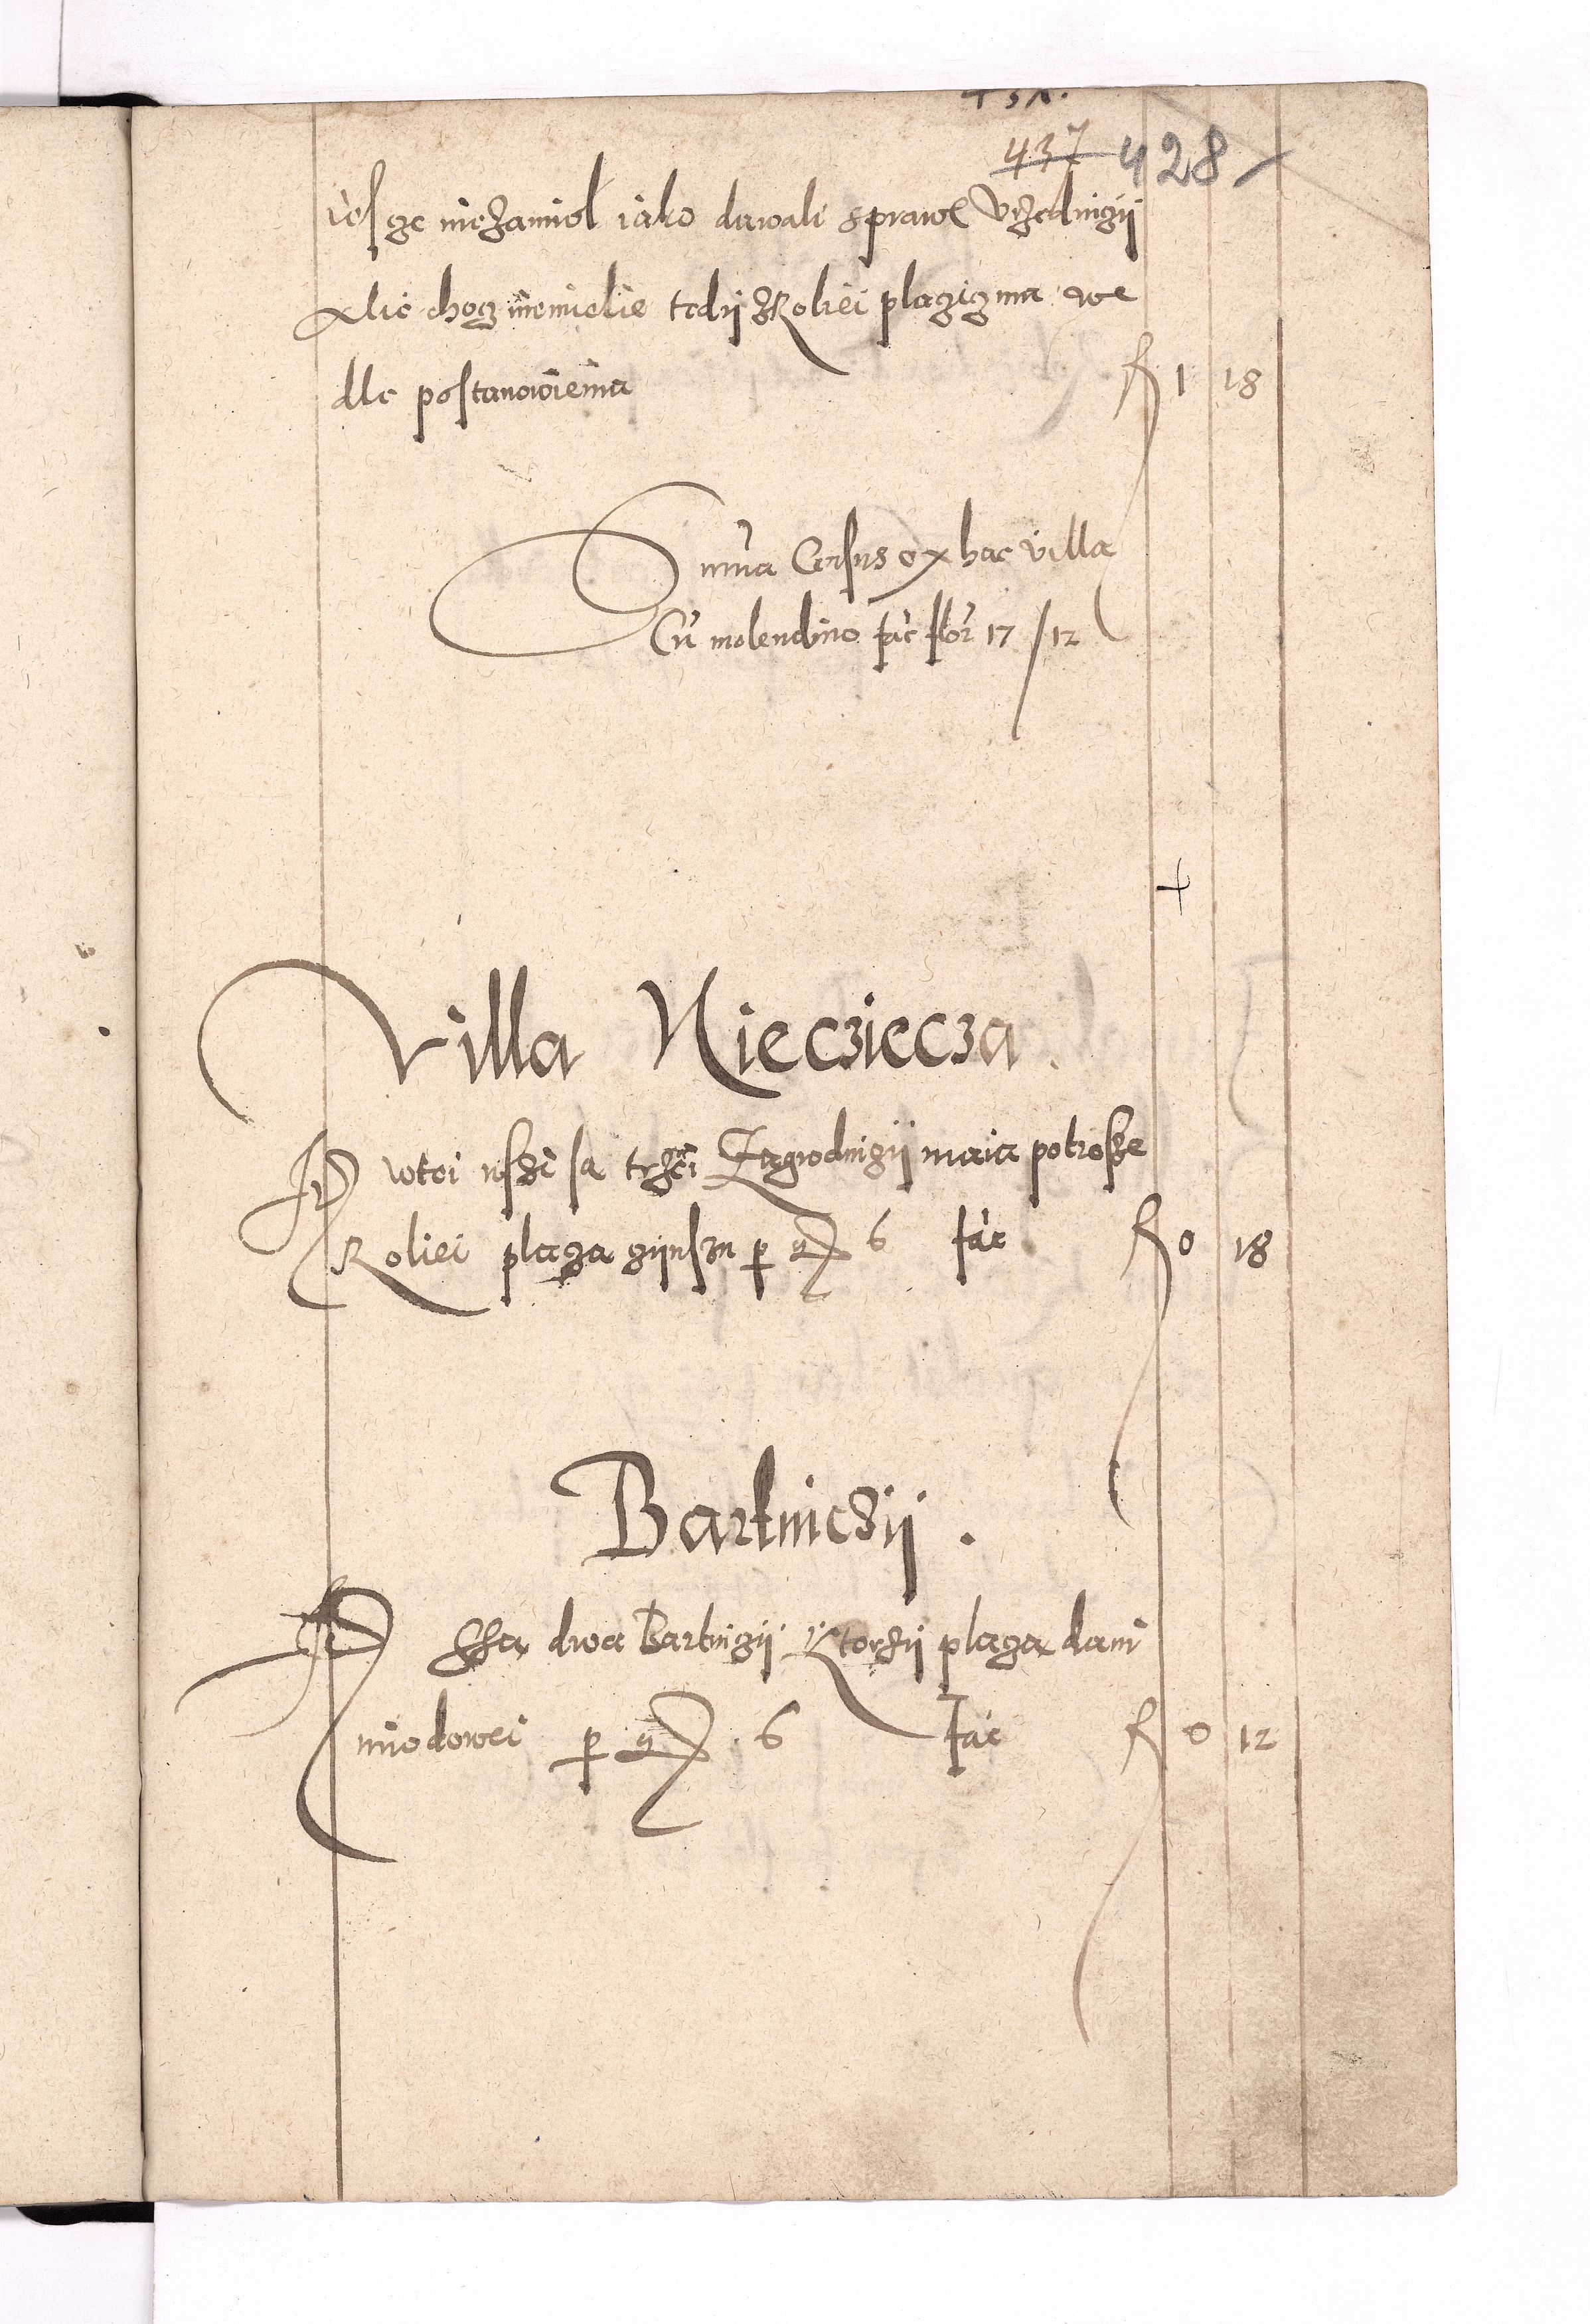 437 428
iesze niezamiol iako dawali sprawę Vrzednigij
Alie choz niemielie tedij z Roliei plaziz ma we
dle postanowienia fl 1 18
Summa Census ex hac villa
Cu molendino fac flor 17 / 12
+
Villa Niecziecza
W wtei wszi sa trzei Zagrodnigij maia potrosze
Roliei plaza gijnszu p gr 6 fac fl 0 18
Bartniczij .
Ssa dwa Bartnigij Ktorzij plaza dani
miodowei p gr 6 fac fl 0 12